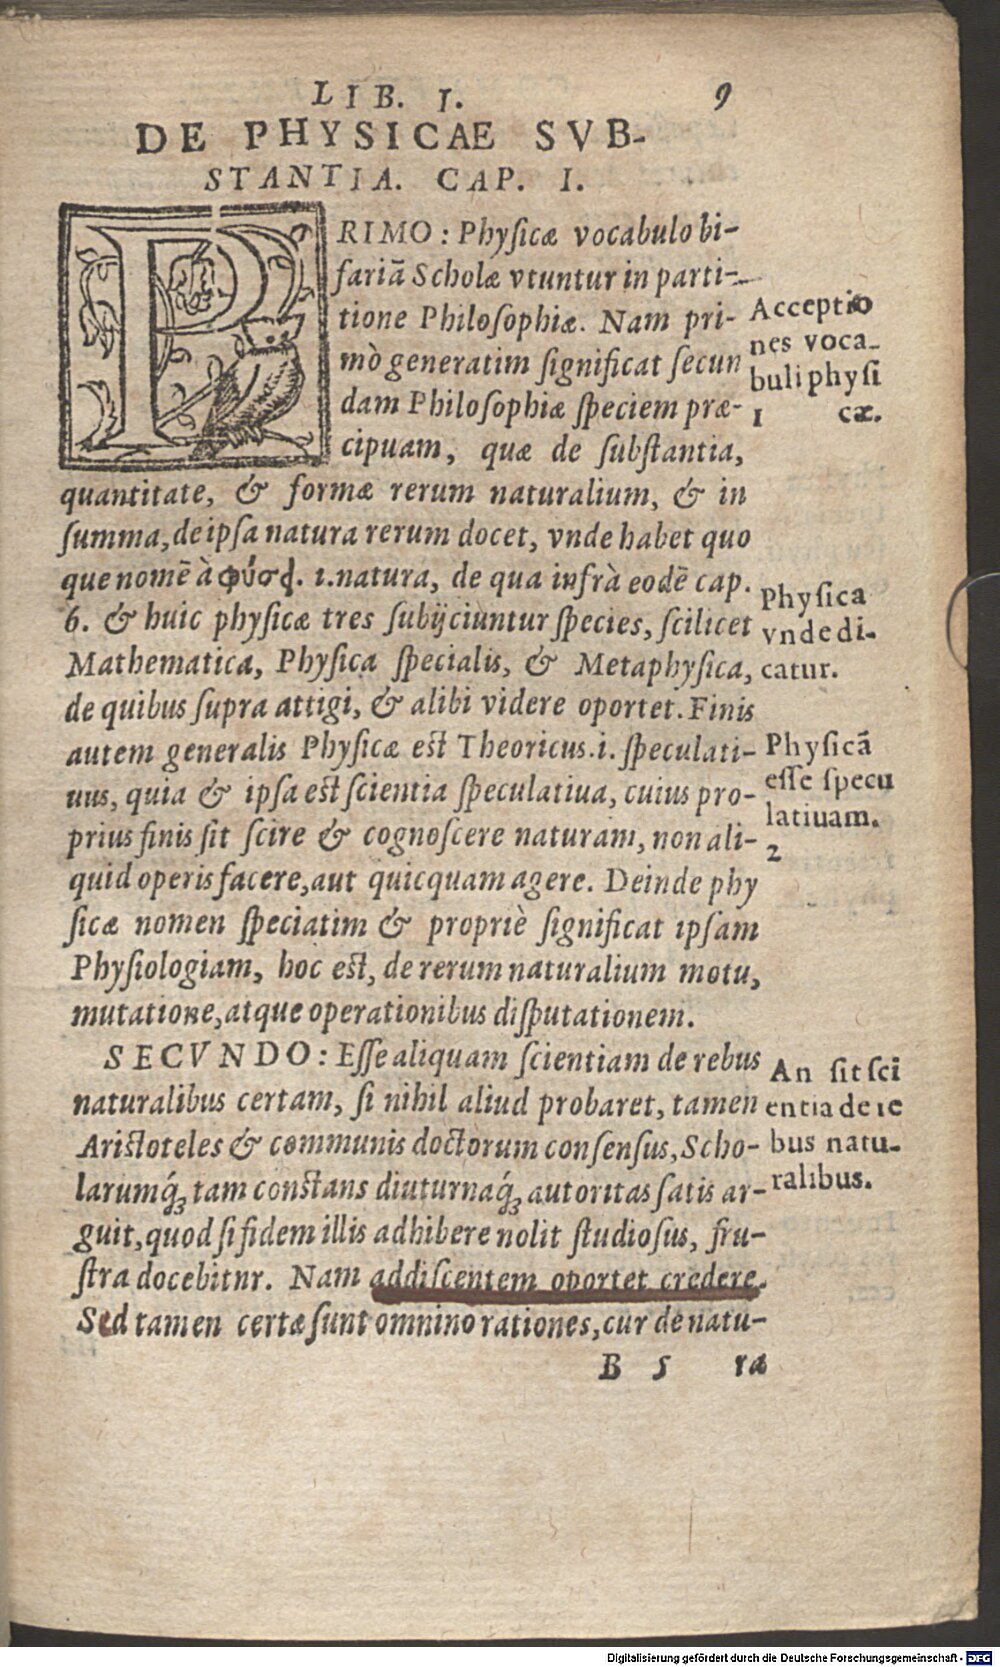 LIB. I. 9
DE PHYSICAE SVB-
STANTIA. CAP. I.
PRIMO: Physicæ vocabulo bi-
fariã Scholæ vtuntur in parti-
tione Philosophiæ. Nam pri-
mò generatim significat secun
dam Philosophiæ speciem præ-
cipuam, quæ de substantia,
quantitate, & formæ rerum naturalium, & in
summa, de ipsa natura rerum docet, vnde habet quo
que nomẽ à φύσς. i. natura, de qua infrà eodẽ cap.
6. & huic physicæ tres subijciuntur species, scilicet
Mathematica, Physica specialis, & Metaphysica,
de quibus supra attigi, & alibi videre oportet. Finis
autem generalis Physicæ est Theoricus. i. speculati-
uus, quia & ipsa est scientia speculatiua, cuius pro-
prius finis sit scire & cognoscere naturam, non ali-
quid operis facere, aut quicquam agere. Deinde phy
sicæ nomen speciatim & propriè significat ipsam
Physiologiam, hoc est, de rerum naturalium motu,
mutatione, atque operationibus disputationem.
SECVNDO: Esse aliquam scientiam de rebus
naturalibus certam, si nihil aliud probaret, tamen
Aristoteles & communis doctorum consensus, Scho-
larumq́; tam constans diuturnaq́; autoritas satis ar-
guit, quod si fidem illis adhibere nolit studiosus, fru-
stra docebitnr. Nam addiscentem oportet credere.
Sed tamen certæ sunt omnino rationes, cur de natu-
B 5 ra
Acceptio
nes voca-
buli physi
1 cæ.
Physica
vnde di-
catur.
Physicã
esse specu
latiuam.
2
An sit sci
entia de re
bus natu-
ralibus.
Digitalisierung gefördert durch die Deutsche Forschungsgemeinschaft - DFG